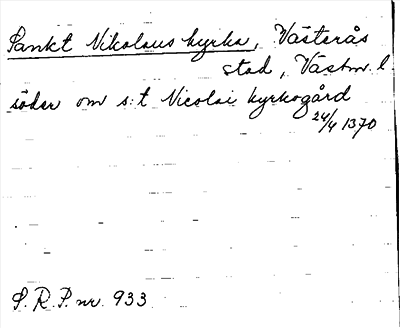 Sankt Nikolaus kyrka, Västerås
stad, Västm. l.
söder om s:t Nicolai kyrkogård
24/4 1370
S.R.P. nr. 933.